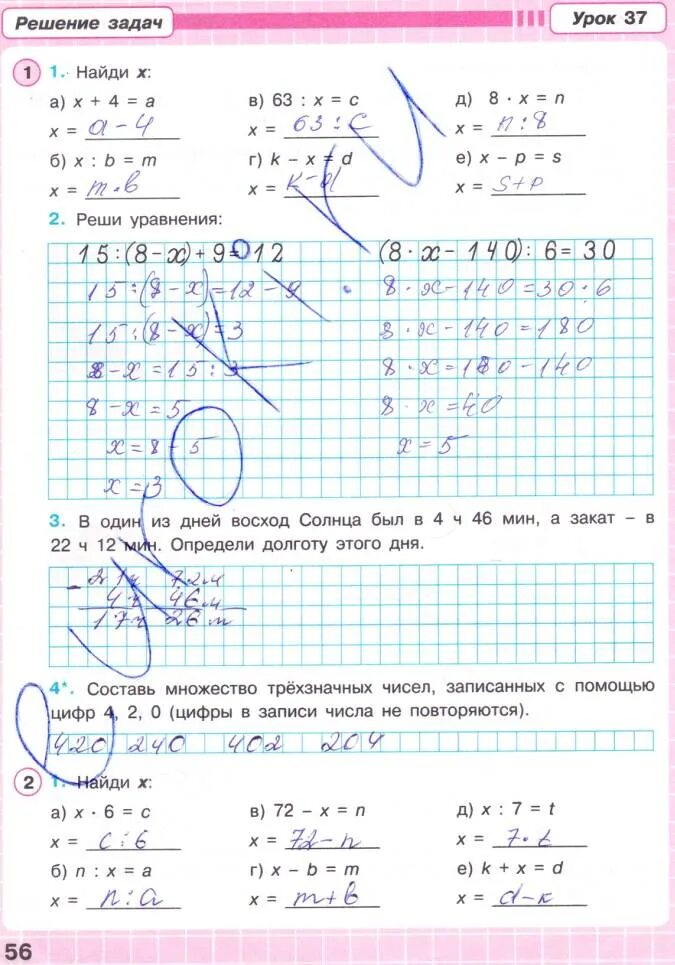 Решение задач
Урок 37
1 1. Найди x:
а) x + 4 = a в) 63 : x = c д) 8 · x = n
x = a - 4 x = 63 : c x = n : 8
б) x : b = m г) k – x = d е) x – p = s
x = m · b x = k - d x = s + p
2. Реши уравнения:
15 : (8 - x) + 9 = 12 (8 · x - 140) : 6 = 30
15 : (8 - x) = 12 - 9 8 · x - 140 = 30 · 6
15 : (8 - x) = 3 8 · x - 140 = 180
8 - x = 15 : 3 8 · x = 180 - 140
8 - x = 5 8 · x = 40
x = 8 - 5 x = 5
x = 3
3. В один из дней восход Солнца был в 4 ч 46 мин, а закат – в
22 ч 12 мин. Определи долготу этого дня.
- 21ч 72м
4ч 46м
17ч 26м
4*. Составь множество трёхзначных чисел, записанных с помощью
цифр 4, 2, 0 (цифры в записи числа не повторяются).
420 240 402 204
2 1. Найди x:
а) x · 6 = c в) 72 – x = n д) x : 7 = t
x = c : 6 x = 72 - n x = 7 · t
б) n : x = a г) x – b = m е) k + x = d
x = n : a x = m + b x = d - k
56